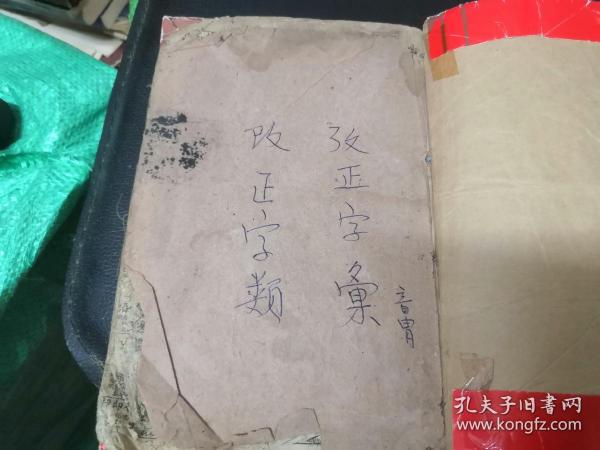 攷正字彙
音胃
改正字類
孔夫子旧书网
www.kongfz.com